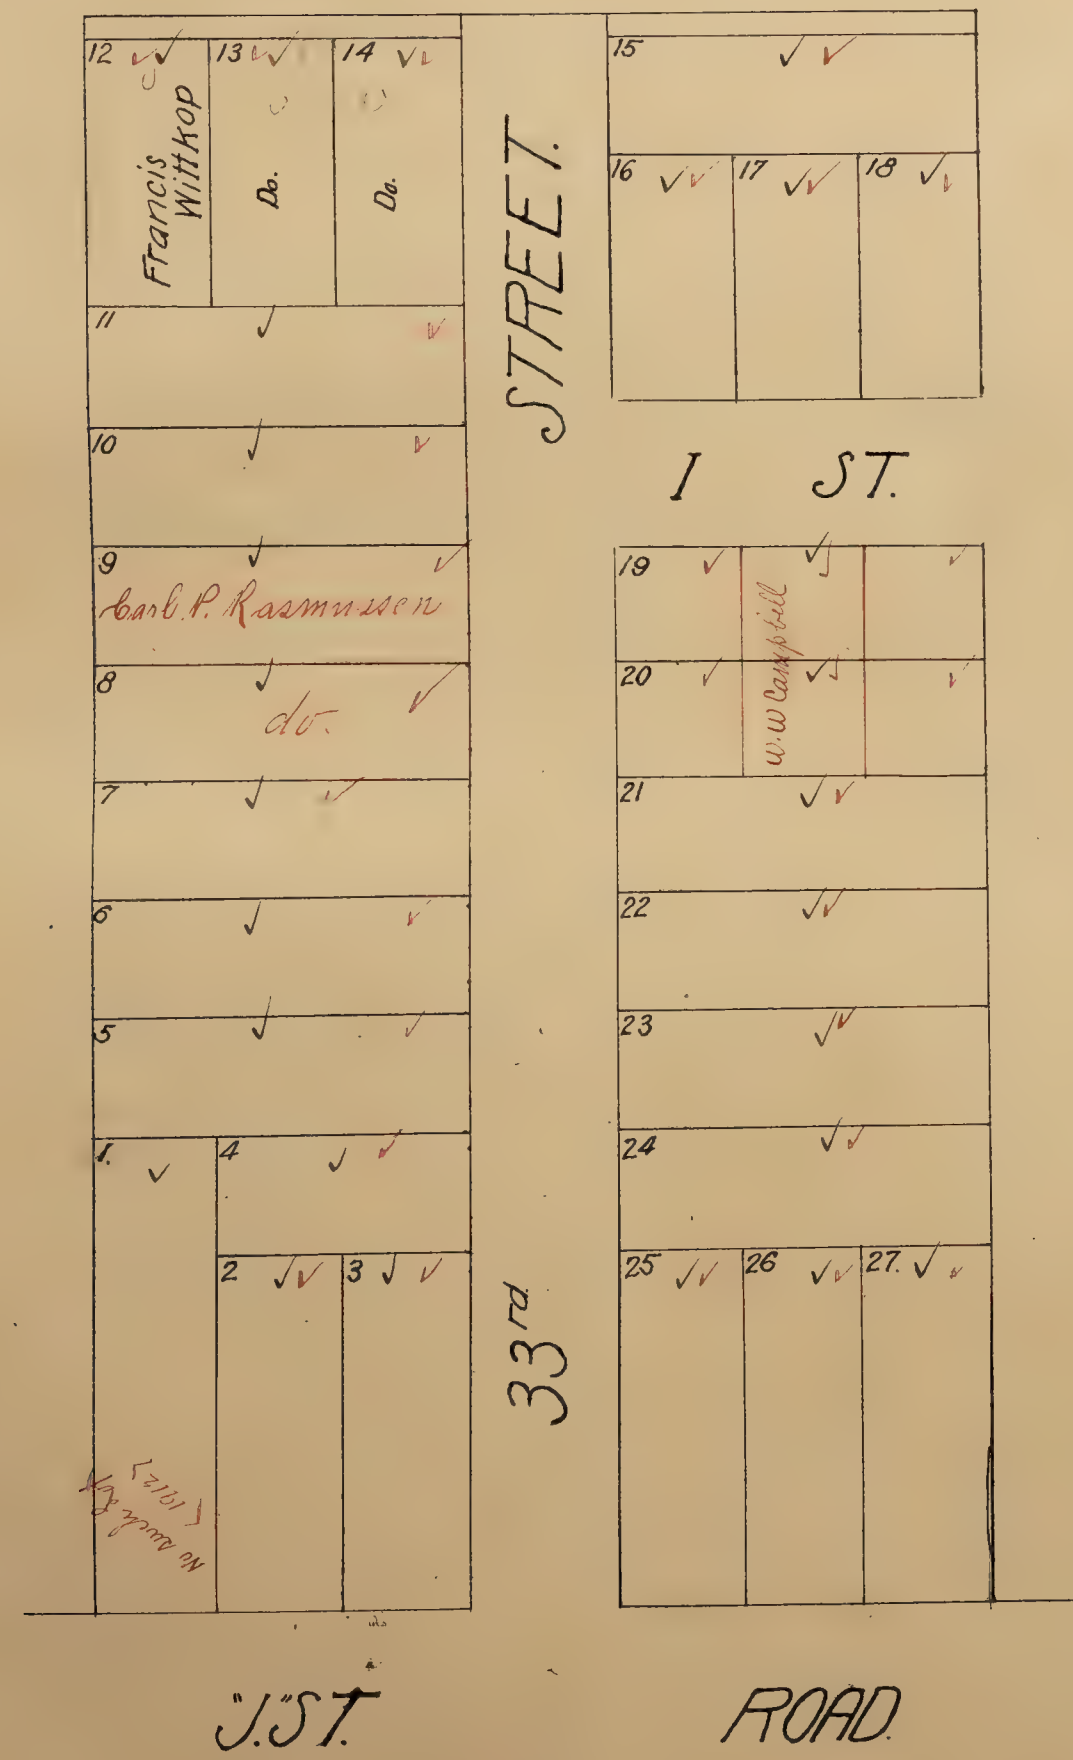 12
13
14
Francis
Wittkop
Do.
Do.
11
10
9
Carl. P. Rasmussen
8
do.
7
6
5
1.
4
2
3
No such Lot
(1912)
33rd. STREET.
15
16
17
18
I ST.
19
20
W. W Campbell
21
22
23
24
25
26
27.
"J." ST.
ROAD.